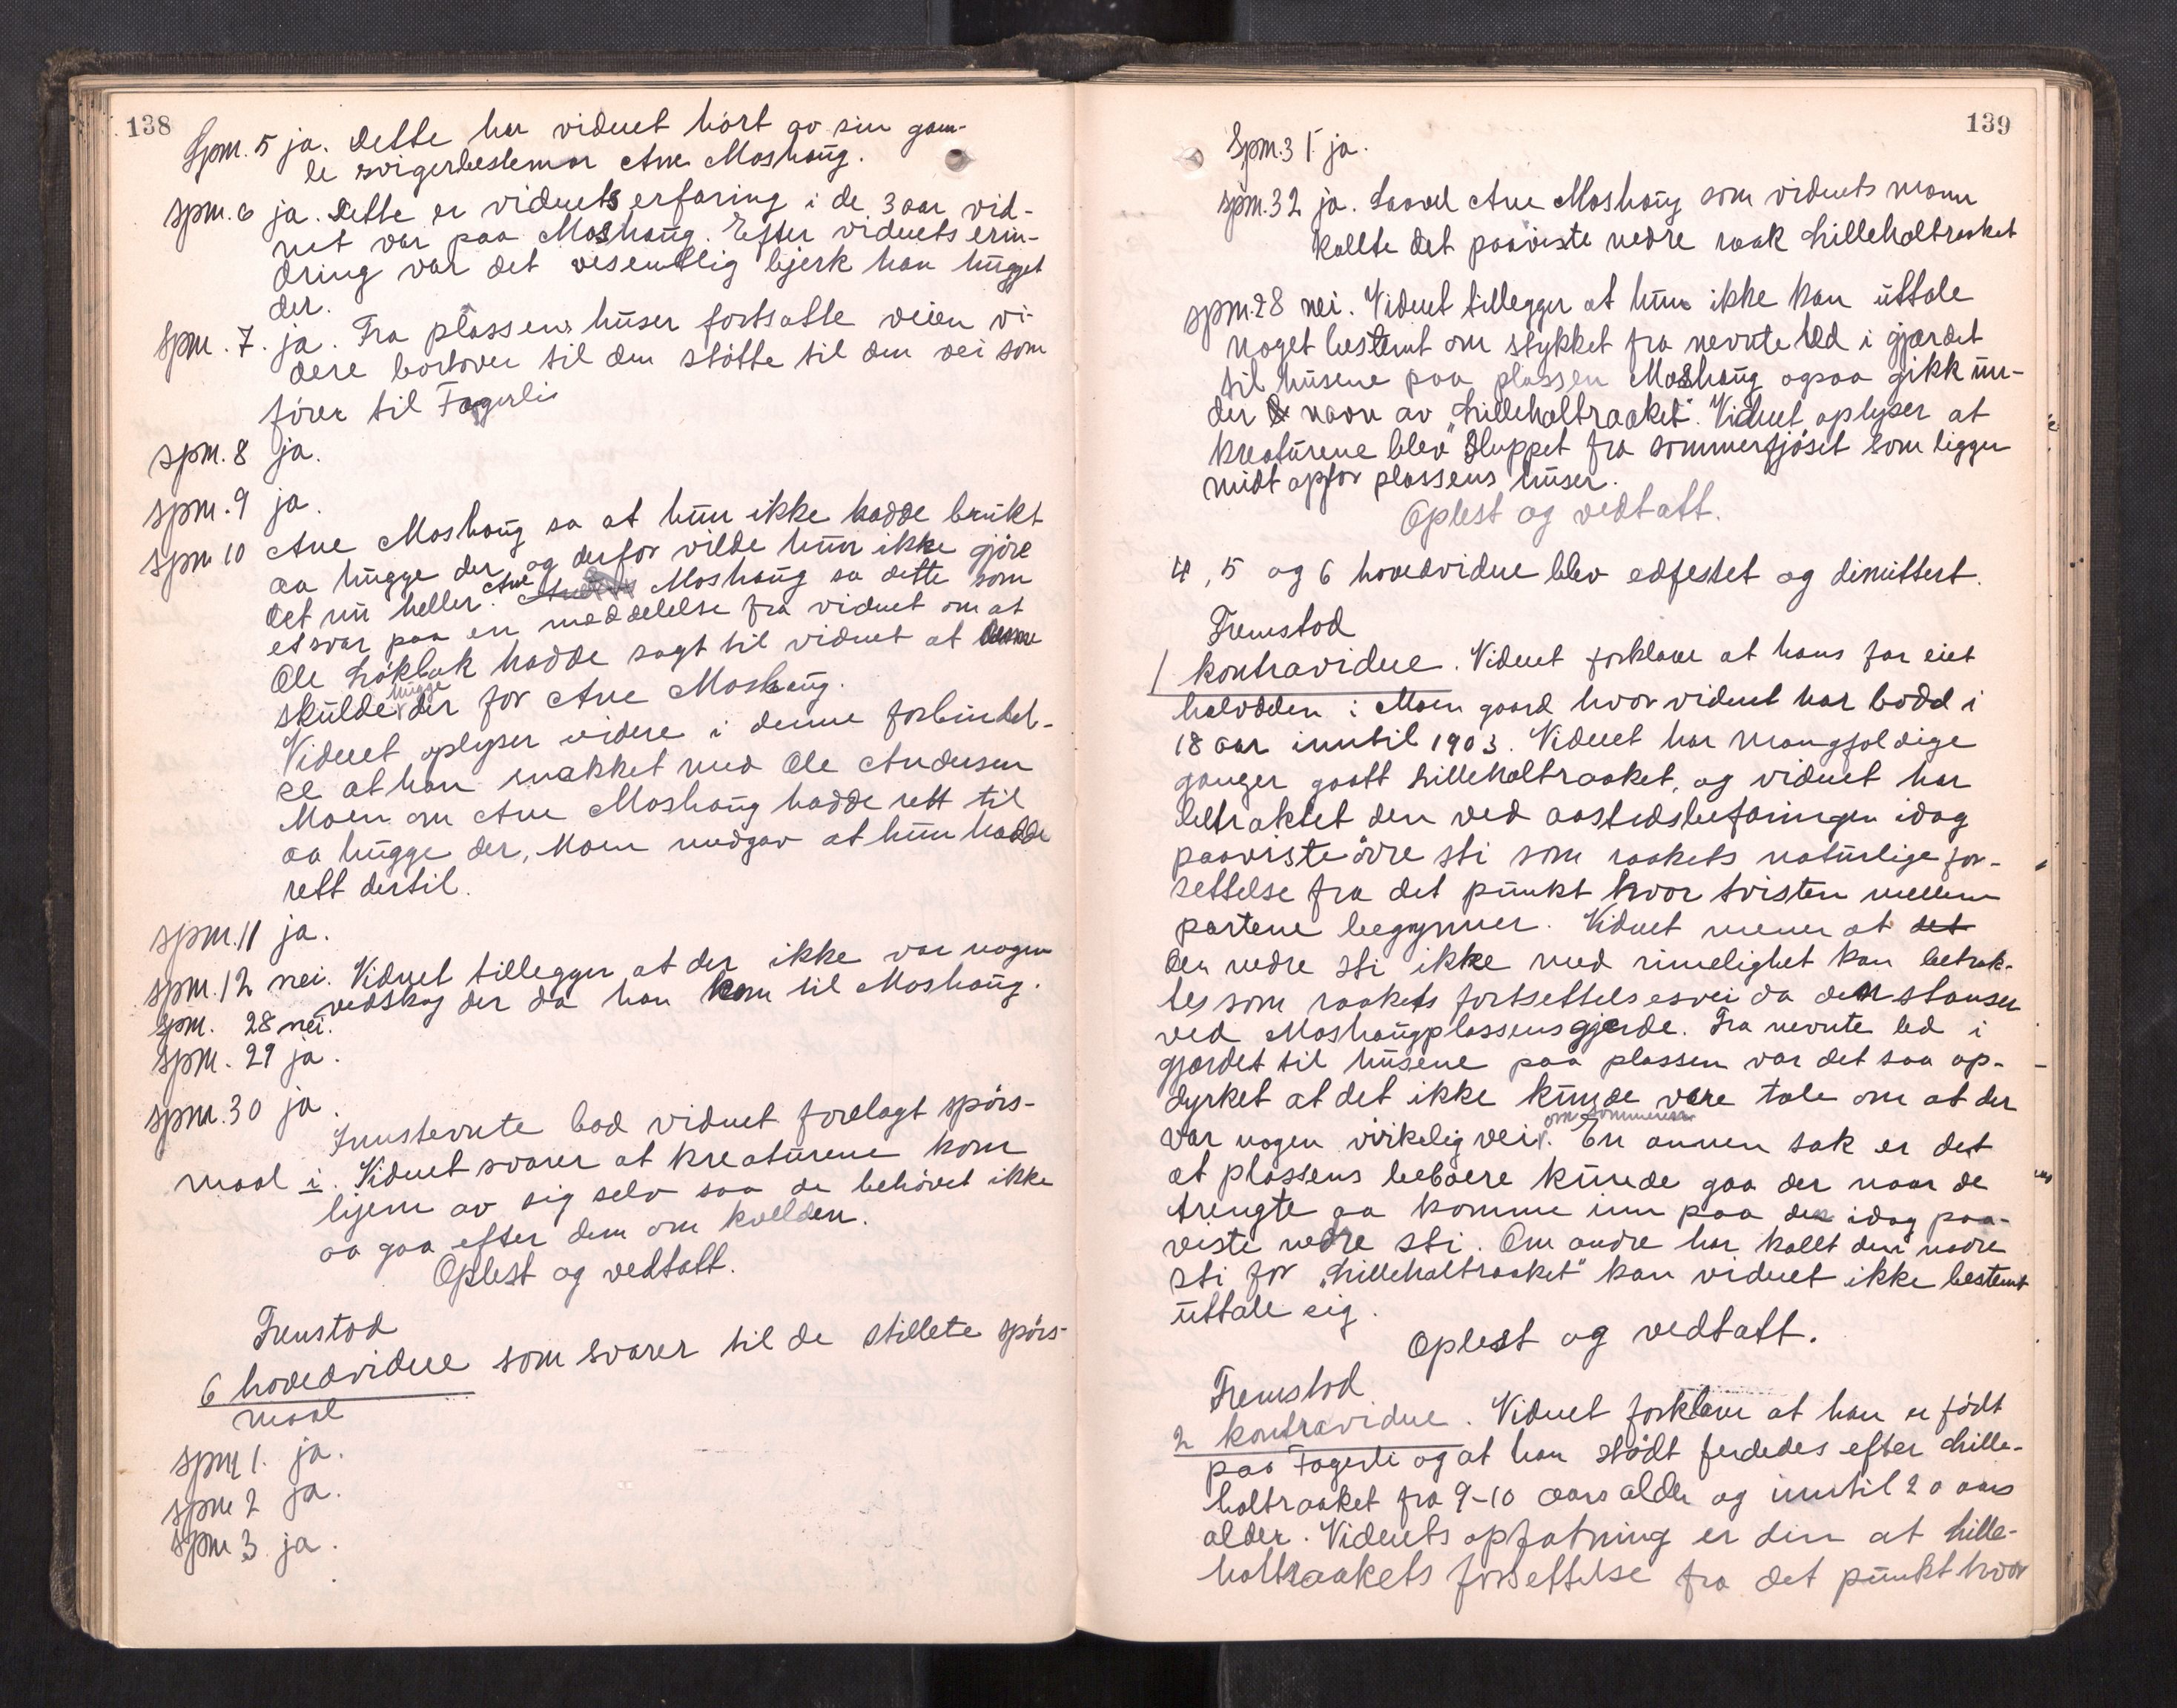 138
Spm. 5 ja. Dette har vidnet hört av sin gam-
le svigerbestemor Ane Moshaug.
spm. 6 ja. Dette er vidnets erfaring i de 3 aar vid-
net var paa Moshaug. Efter vidnets erin-
dring var det vesentlig bjerk han hugget
der.
spm. 7. ja. Fra plassens huser fortsatte veien vi-
dere bortover til den stötte til den vei som
förer til Fagerli
spm. 8 ja.
spm. 9 ja.
spm 10 Ane Moshaug sa at hun ikke hadde brukt
aa hugge der og derfor vilde hun ikke gjöre
det nu heller. Ane Moshaug sa dette som
et svar paa en meddelelse fra vidnet om at
Ole Lökbak hadde sagt til vidnet at denne
skulde hugge der for Ane Moshaug.
Vidnet oplyser videre i denne forbindel-
se at han snakket med Ole Andersen
Moen om Ane Moshaug hadde rett til
aa hugge der, Moen medgav at hun hadde
rett dertil.
spm. 11 ja.
spm. 12 nei. Vidnet tillegger at der ikke var nogen
vedskog der da han kom til Moshaug.
spm. 28 nei.
spm. 29 ja.
spm. 30 ja.
Innstevnte bad vidnet forelagt spörs-
maal i. Vidnet svarer at kreaturene kom
hjem av sig selv saa de behövet ikke
aa gaa efter dem om kvelden.
Oplest og vedtatt.
Fremstod
6 hovedvidne som svarer til de stillete spörs-
maal
spm 1. ja.
spm 2 ja.
spm 3 ja.
139
Spm. 31 ja.
spm. 32 ja. Saavel Ane Moshaug som vidnets mann
kallte det paaviste nedre raak Lilleholtraaket
spm. 28 nei. Vidnet tillegger at hun ikke kan uttale
noget bestemt om stykket fra nevnte led i gjærdet
til husene paa plassen Moshaug ogsaa gikk un-
der navn av "Lilleholtraaket". Vidnet oplyser at
kreaturene blev sluppet fra sommerfjöset som ligger
midt opfor plassens huser.
Oplest og vedtatt.
4, 5 og 6 hovedvidne blev edfestet og dimittert.
Fremstod
1 kontravidne. Vidnet forklarer at hans far eiet
halvdelen i Moen gaard hvor vidnet har bodd i
18 aar inntil 1903. Vidnet har mangfoldige
ganger gaatt Lilleholtraaket, og vidnet har
betraktet den ved aastedsbefaringen idag
paaviste övre sti som raakets naturlige for-
settelse fra det punkt hvor tvisten mellem
partene begynner. Vidnet mener at det
den nedre sti ikke med rimelighet kan betrak-
tes som raakets fortsettelsesvei da den stanser
ved Moshaugplassens gjerde. Fra nevnte led i
gjærdet til husene paa plassen var det saa op-
dyrket at det ikke kunde være tale om at der
var nogen virkelig vei om sommeren. En annen sak er det
at plassens beboere kunde gaa der naar de
trengte aa komme inn paa den idag paa-
viste nedre sti. Om andre har kallt den nedre
sti for "Lilleholtraaket" kan vidnet ikke bestemt
uttale sig.
Oplest og vedtatt.
Fremstod
2 kontravidne. Vidnet forklarer at han er födt
paa Fagerli og at han stödt ferdedes efter Lille-
holtraaket fra 9-10 aars alder og inntil 20 aars
alder. Vidnets opfatning er den at Lille-
holtraakets forsettelse fra det punkt hvor